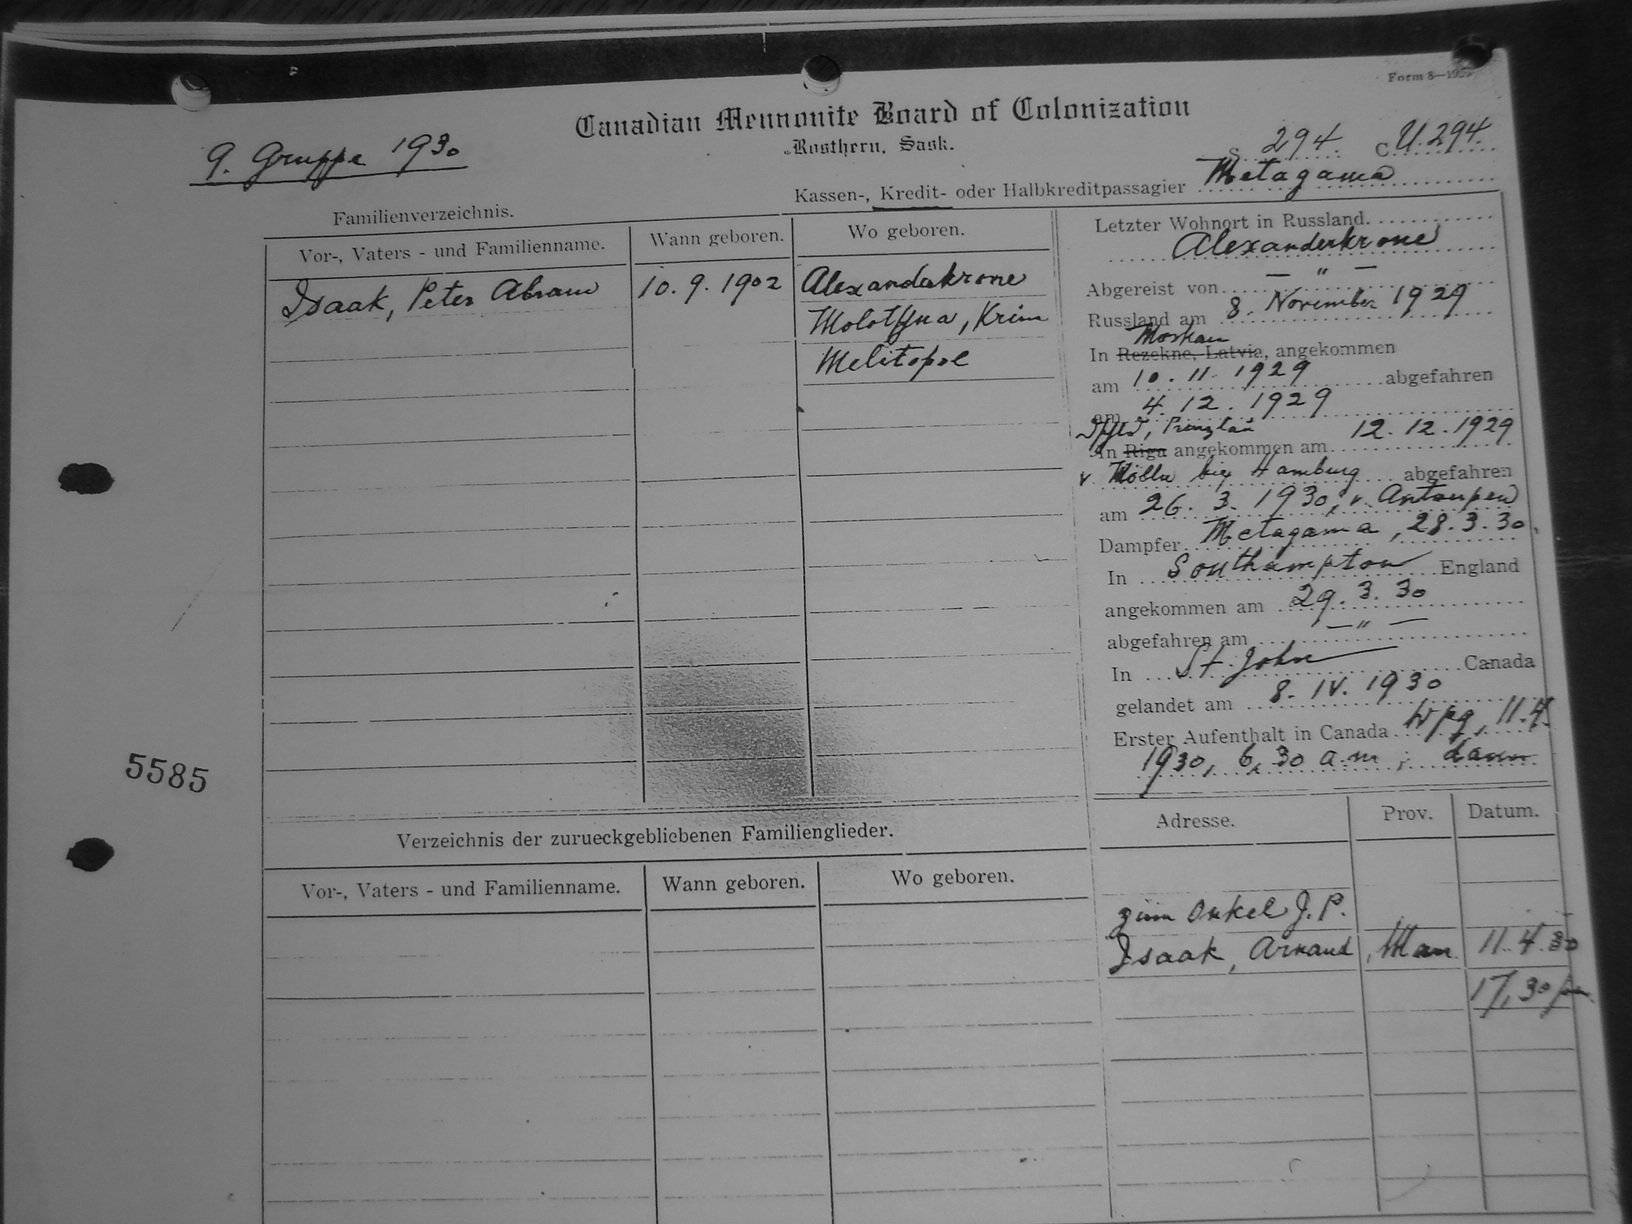 Form 8—
Canadian Mennonite Board of Colonization
Rosthern, Sask.
9. Gruppe 1930
S. 294. C U.294.
Kassen-, Kredit- oder Halbkreditpassagier Metagama
Familienverzeichnis.
Vor-, Vaters - und Familienname. Wann geboren. Wo geboren.
Isaak, Peter Abram 10.9.1902 Alexanderkrone
Molotschna, Krim
Melitopol
Letzter Wohnort in Russland.
Alexanderkrone
Abgereist von — " —
Russland am 8. November 1929
Moskau
In Rezekne, Latvia, angekommen
am 10.11.1929 abgefahren
am 4.12.1929
Prenzlau
In Riga angekommen am 12.12.1929
v. Mölln bei Hamburg abgefahren
am 26.3.1930, v. Antwerpen
Dampfer Metagama, 28.3.30.
In Southampton England
angekommen am 29.3.30
abgefahren am — " —
In St. John Canada
gelandet am 8. IV. 1930
Erster Aufenthalt in Canada Wpg, 11.4.
1930, 6,30 a.m; dann
5585
Verzeichnis der zurueckgebliebenen Familienglieder.
Vor-, Vaters - und Familienname. Wann geboren. Wo geboren.
Adresse. Prov. Datum.
zum Onkel J. P.
Isaak, Arnaud, Man. 11.4.30
17,30